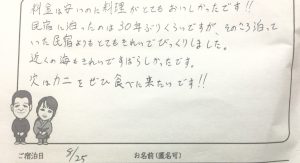 料金は安いのに料理がとてもおいしかったです!!
民宿に泊ったのは30年ぶりくらいですが、そのころ泊って
いた民宿よりもとてもきれいでびっくりしました。
近くの海もきれいですばらしかったです。
次はカニをぜひ食べに来たいです!!
ご宿泊日 8/25 お名前(匿名可)